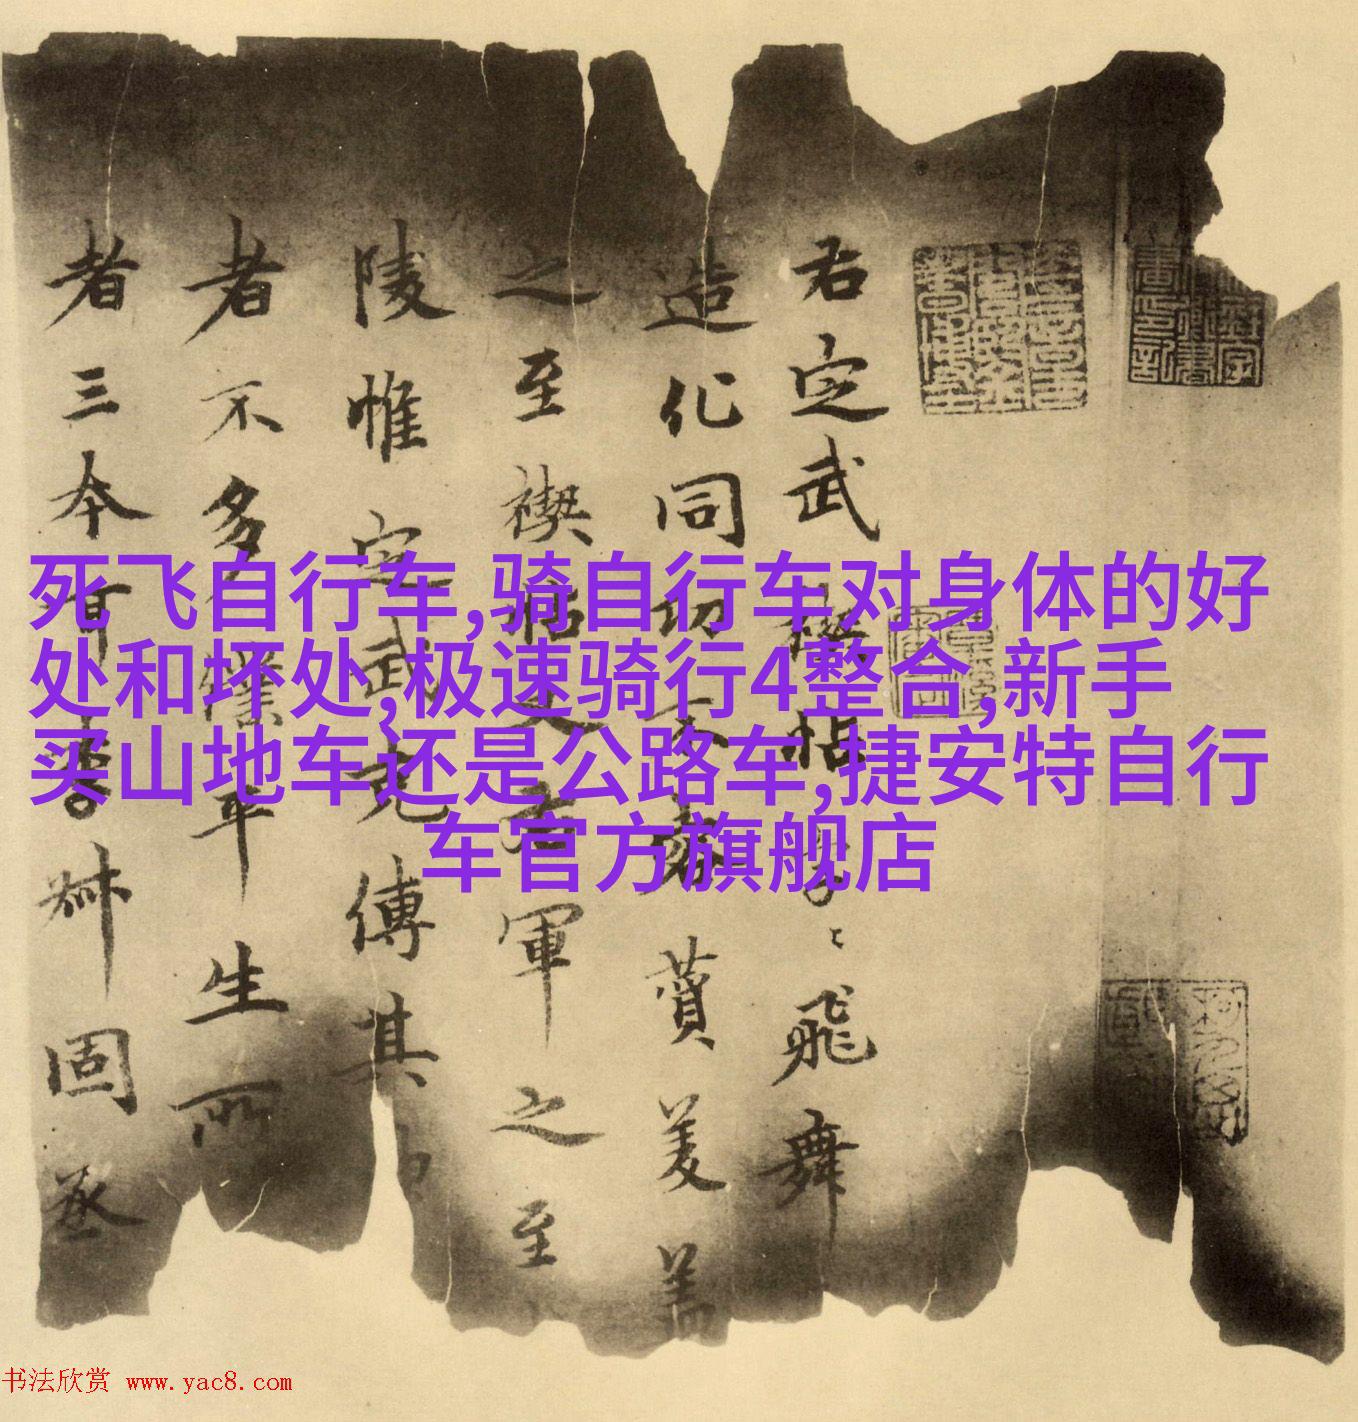 死飞自行车,骑自行车对身体的好
处和坏处,极速骑行4整合,新手
买山地车还是公路车,捷安特自行
车官方旗舰店
定武禊帖飛舞
造化同功賛美盖
之至禊帖又右軍之至
陵惟定武傳其
者不多僕平生所
者三本固
书法欣赏 www.yac8.com